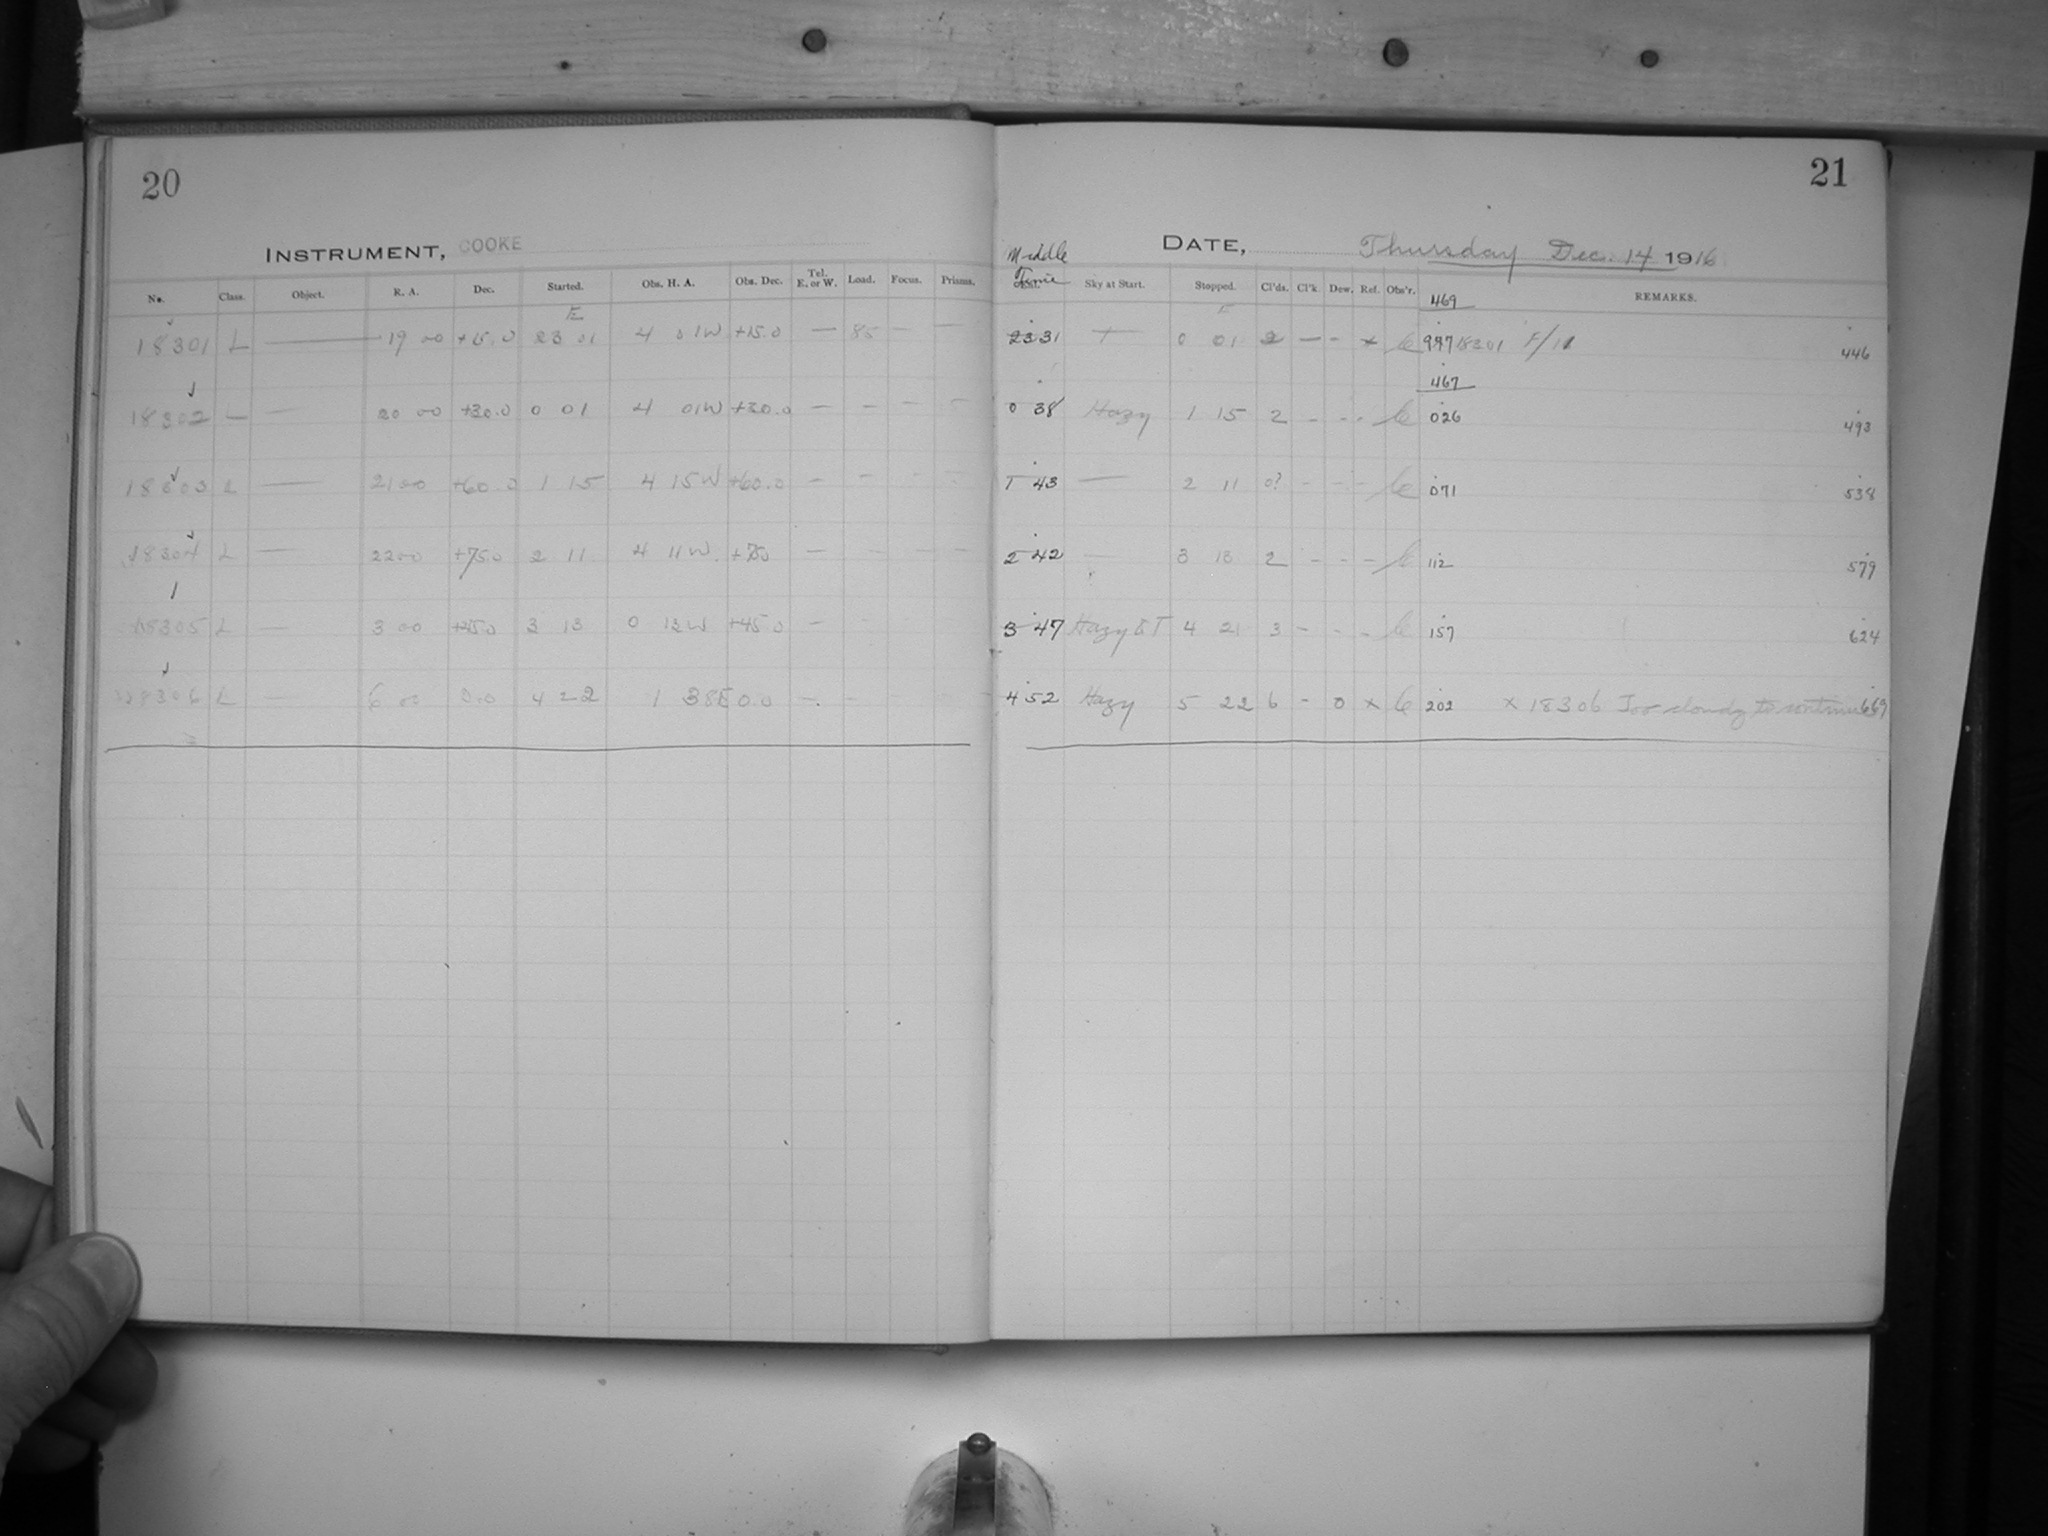 20
INSTRUMENT, COOKE
No. Class. Object. R. A. Dec. Started. Obs. H. A. Obs. Dec. Tel. E. or W. Load. Focus. Prisms.
E
18301 L — 19 00 +15.0 23 01 4 01W +15.0 — 85 — —
18302 — — 20 00 +30.0 0 01 4 01W +30.0 — — — —
18303 L — 21 00 +60.0 1 15 4 15W +60.0 — — — —
18304 L — 22 00 +75.0 2 11 4 11W. +75.0 — — — —
18305 L — 3 00 +45.0 3 13 0 13W +45.0 — —
18306 L — 6 00 0.0 4 22 1 38E 0.0 — —
21
DATE, Thursday Dec. 14 1916
Middle Time Sky at Start. Stopped. Cl'ds. Cl'k. Dew. Ref. Obs'r. REMARKS.
E
469
23 31 — 0 01 2 — - x 997 18301 F/11 446
467
0 38 Hazy 1 15 2 - - - 026 493
1 43 — 2 11 0? - - - 071 538
2 42 — 3 13 2 - - - 112 579
3 47 Hazy & T 4 21 3 - - - 157 624
4 52 Hazy 5 22 6 - 0 x 202 x 18306 Too cloudy to continue 669